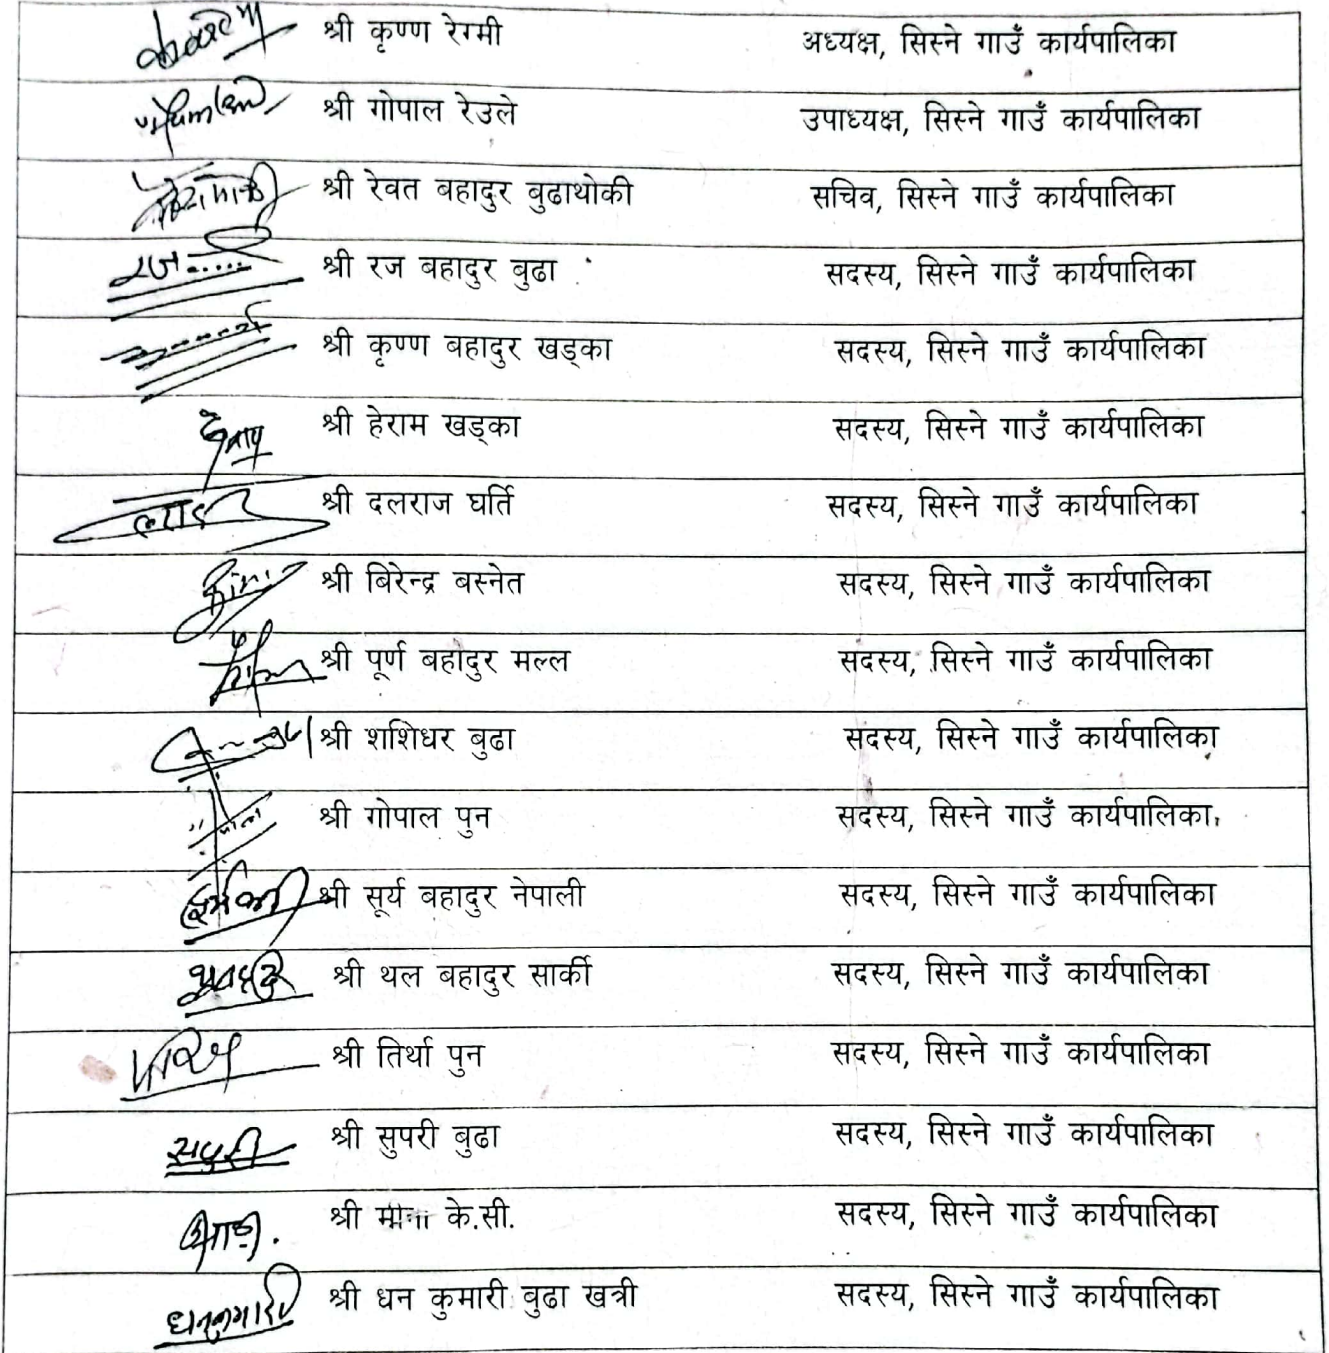 श्री कृष्ण रेग्मी अध्यक्ष, सिस्ने गाउँ कार्यपालिका
श्री गोपाल रेउले उपाध्यक्ष, सिस्ने गाउँ कार्यपालिका
श्री रेवत बहादुर बुढाथोकी सचिव, सिस्ने गाउँ कार्यपालिका
रज श्री रज बहादुर बुढा सदस्य, सिस्ने गाउँ कार्यपालिका
श्री कृष्ण बहादुर खड्का सदस्य, सिस्ने गाउँ कार्यपालिका
श्री हेराम खड्का सदस्य, सिस्ने गाउँ कार्यपालिका
श्री दलराज घर्ति सदस्य, सिस्ने गाउँ कार्यपालिका
श्री बिरेन्द्र बस्नेत सदस्य, सिस्ने गाउँ कार्यपालिका
श्री पूर्ण बहादुर मल्ल सदस्य, सिस्ने गाउँ कार्यपालिका
श्री शशिधर बुढा सदस्य, सिस्ने गाउँ कार्यपालिका
श्री गोपाल पुन सदस्य, सिस्ने गाउँ कार्यपालिका
श्री सूर्य बहादुर नेपाली सदस्य, सिस्ने गाउँ कार्यपालिका
श्री थल बहादुर सार्की सदस्य, सिस्ने गाउँ कार्यपालिका
श्री तिर्था पुन सदस्य, सिस्ने गाउँ कार्यपालिका
श्री सुपरी बुढा सदस्य, सिस्ने गाउँ कार्यपालिका
श्री के.सी. सदस्य, सिस्ने गाउँ कार्यपालिका
श्री धन कुमारी बुढा खत्री सदस्य, सिस्ने गाउँ कार्यपालिका